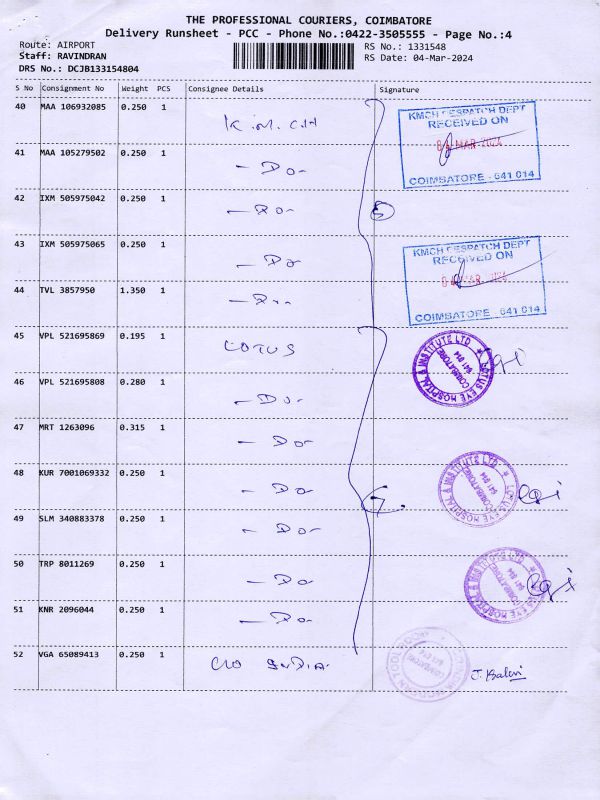 THE PROFESSIONAL COURIERS, COIMBATORE
Delivery Runsheet - PCC - Phone No.:0422-3505555 - Page No.:4
Route: AIRPORT
RS No.: 1331548
Staff: RAVINDRAN
RS Date: 04-Mar-2024
DRS No.: DCJB133154804
S No Consignment No Weight PCS Consignee Details Signature
40 MAA 106932085 0.250 1 K.M.C.H
41 MAA 105279502 0.250 1 - Do -
42 IXM 505975042 0.250 1 - Do -
43 IXM 505975065 0.250 1 - Do
44 TVL 3857950 1.350 1
45 VPL 521695869 0.195 1 LOTUS
46 VPL 521695808 0.280 1 - Do -
47 MRT 1263096 0.315 1 - Do -
48 KUR 7001069332 0.250 1 - Do -
49 SLM 340883378 0.250 1 - Do -
50 TRP 8011269 0.250 1 - Do -
51 KNR 2096044 0.250 1 - Do -
52 VGA 65089413 0.250 1
5
7
KMCH DESPATCH DEPT
RECEIVED ON
04 MAR 2024
COIMBATORE - 641 014
KMCH DESPATCH DEPT
RECEIVED ON
04 MAR 2024
COIMBATORE - 641 014
LOTUS EYE HOSPITAL & INSTITUTE LTD
COIMBATORE
641 014
LOTUS EYE HOSPITAL & INSTITUTE LTD
COIMBATORE
641 014
LOTUS EYE HOSPITAL & INSTITUTE LTD
COIMBATORE
641 014